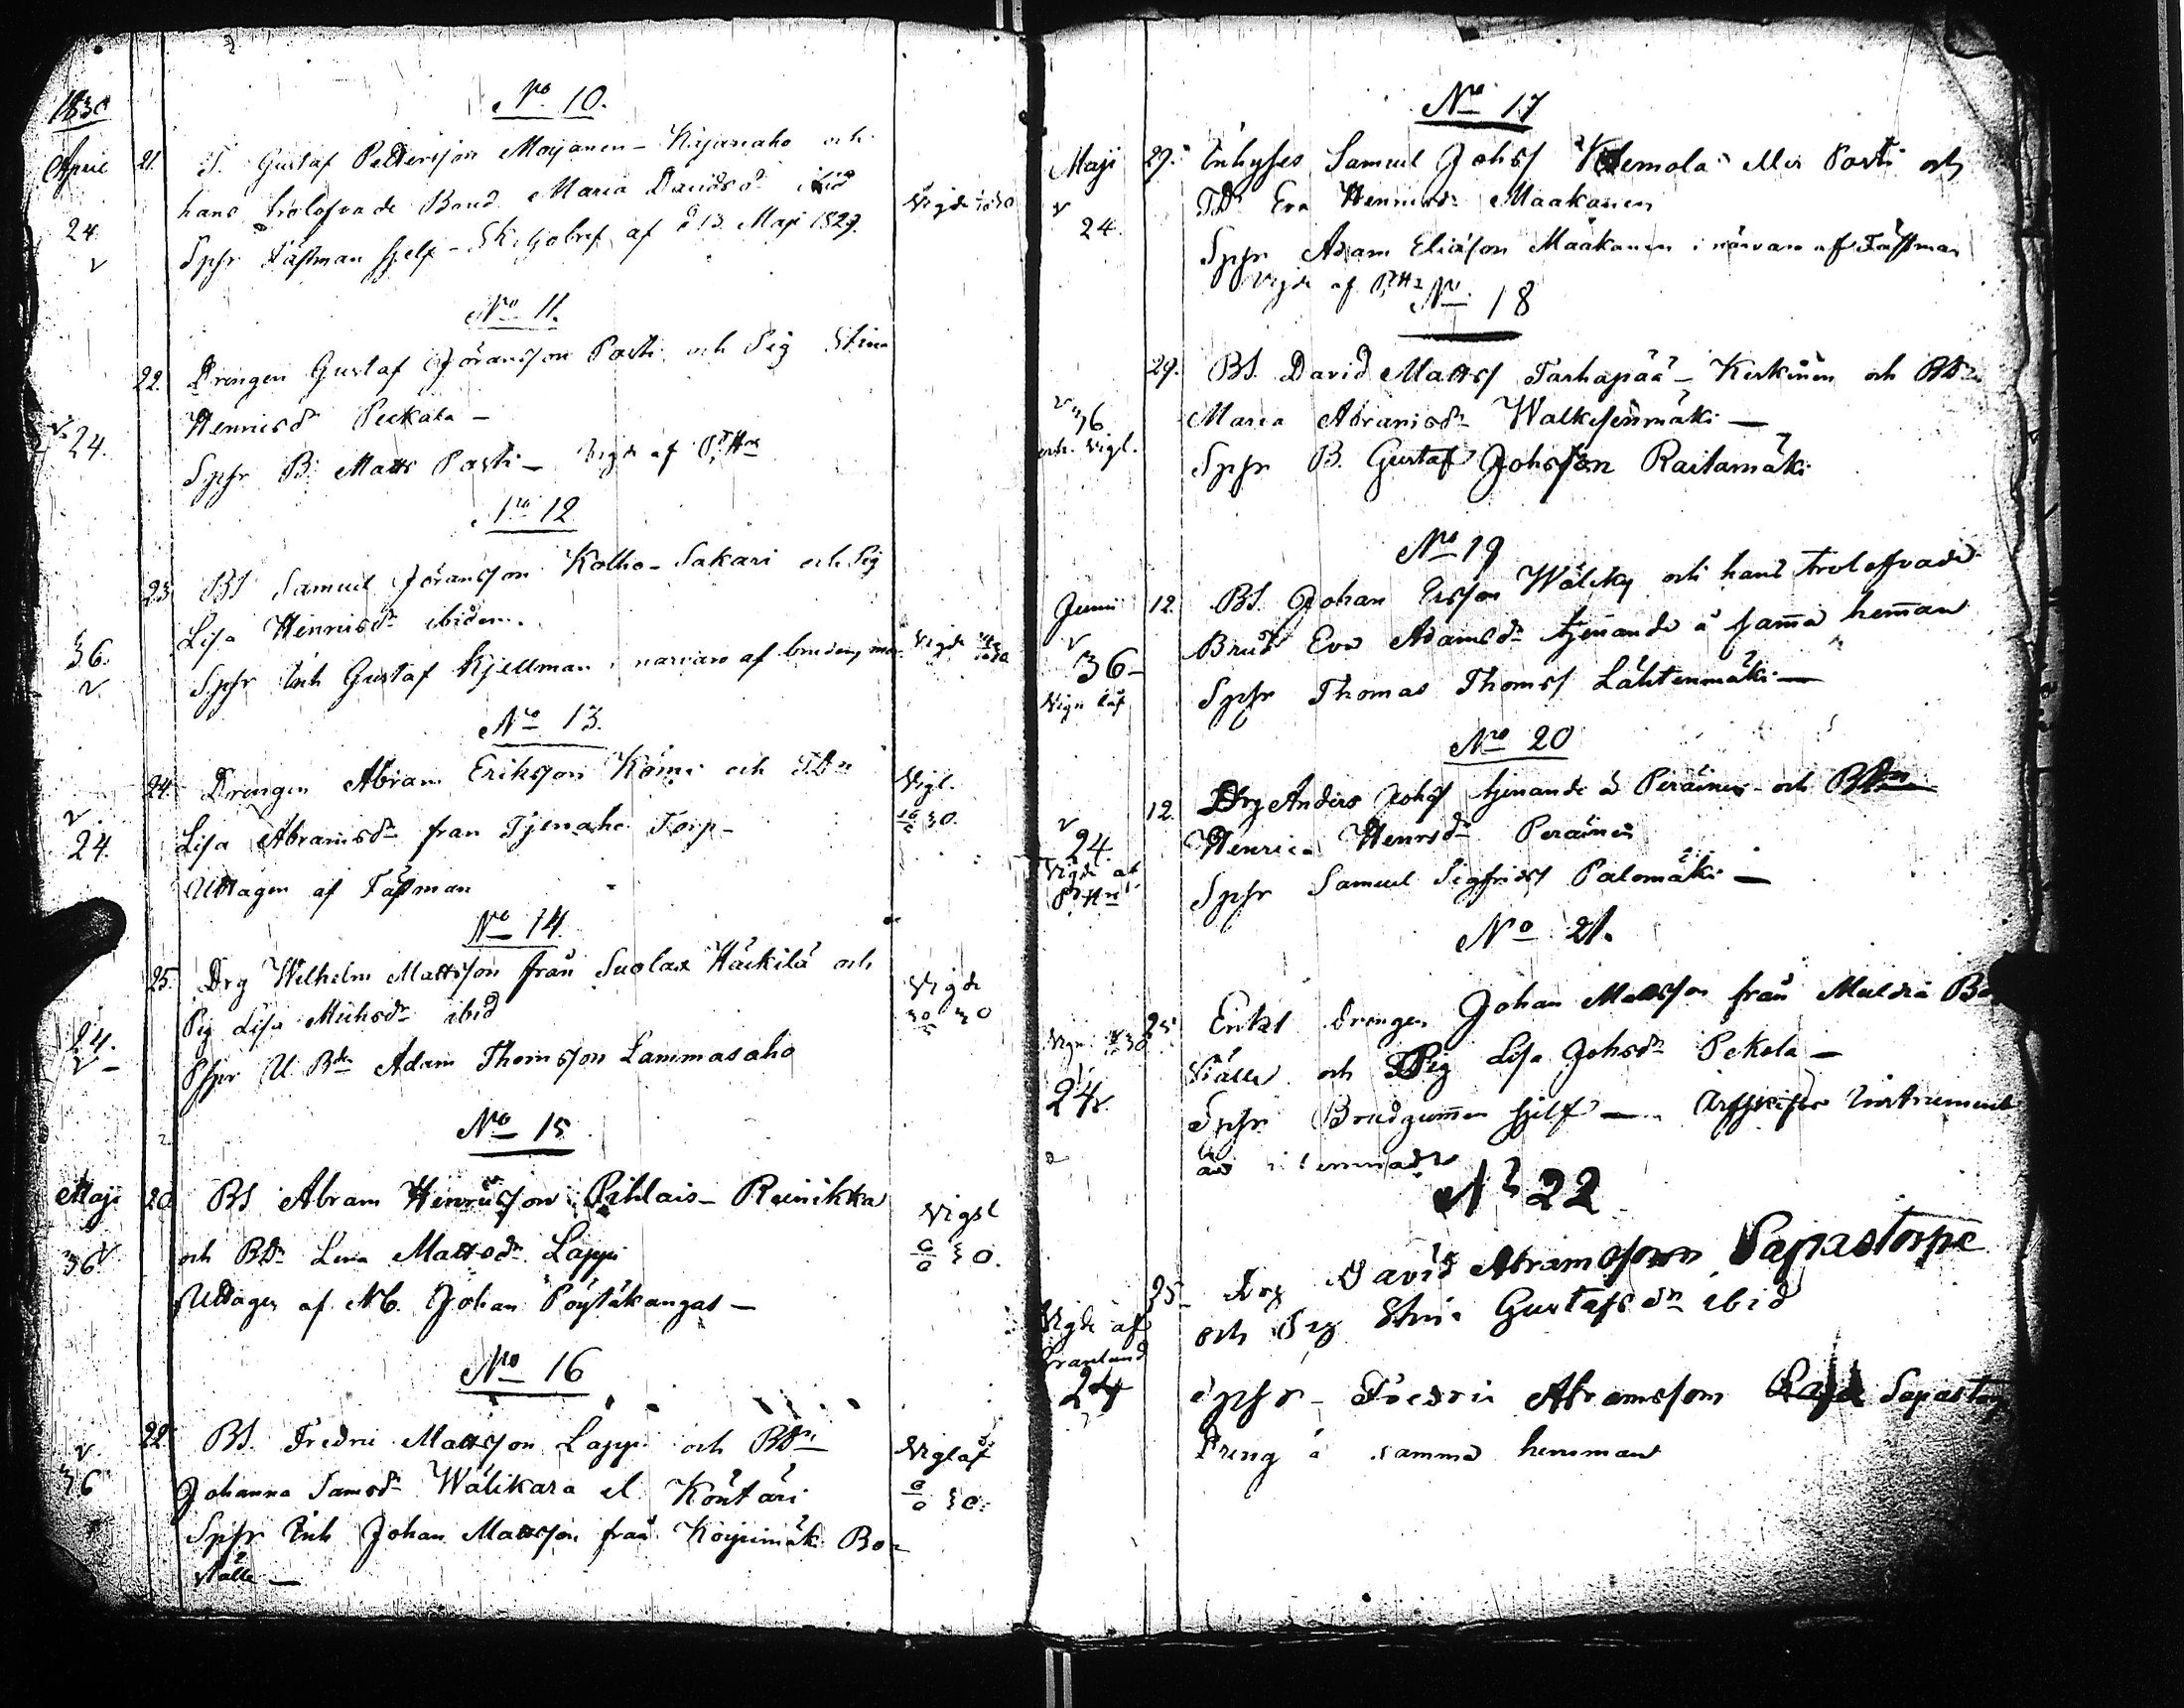 1830
No 10.
April 21. T. Gustaf Pettersson Moijanen - Kujanaho och
hans trolofvade Brud Maria Davidsdr ibid
24 Spfr Fästman sjelf - Skiljobref af d 13 Maji 1829.
No 11.
22. Drengen Gustaf Jöransson Posti och Pig Stina
Hennisdr Peckala -
24. Spfr B. Matts Posti - Vigde af
No 12
23. BS Samuel Jöransson Kolho - Sakari och Pig
Lisa Hennisdr ibidem.
36. Spfr Inh Gustaf Kjellman i närvaro af brudens mor Vigde
No 13.
24. Drengen Abram Eriksson Kömi och TDr Vigl.
24. Lisa Abramsdr från Torp - 30.
Uttagen af Fästman
No 14.
25. Drg Wilhelm Mattsson från Suolax Häikilä och Vigde
Pig Lisa Michsdr ibid
24. Spfr U. Bdn Adam Thomsson Lammasaho
No 15
Maji 20 BS Abram Henricsson Pihlais - Reinikka Vigsl
36 och BDr Lena Mattsdr Lappi 30.
Uttagen af Nb. Johan Pöytäkangas -
No 16
22. BS. Fredric Mattsson Lappi och BDr Viglaf
36 Johanna Samsdr Wälikara el. Köntäri 30.
Spfr Inh Johan Mattsson från Köyrimäki Bo-
ställe -
No 17
Maji 29. Inhyses Samuel Johss Klemola eller Posti och
24. TDr Eva Hennisdr Maakanen
Spfr Adam Eliasson Maakanen i närvaro af Fästman
Vigde af
No 18
29. BS. David Matss Tarhapää - Keskinen och BDr
36 Maria Abramsdr Walkesenmäki -
Vigl. Spfr B. Gustaf Johsson Raitamäki
No 19
Junii 12. BS. Johan Ersson Wäliky och hans trolofvade
36 - Brud Eva Adamsdr tjenande å samma hemman
Spfr Thomas Thomss Lähtenmäki -
No 20
12. Drg Anders Johss tjenande å Peräinen och BDr
24. Henrica Henrsdr Peräinen
Vigde af Spfr Samuel Sigfridss Palomäki -
No 21.
25 Enkl drengen Johan Matsson från Muldia Bo
24. ställe och Pig Lisa Johsdr Pekola -
Spfr Brudgumen sjelf - Afskifts Instrument
är inlemnadt
No 22
25 - Drg David Abramsson Papastorpe
Vigde af och Pig Stina Gustafsdr ibid
Granlund
24 Spfr - Fredric Abramsson Papastorp
Dreng å samma hemman